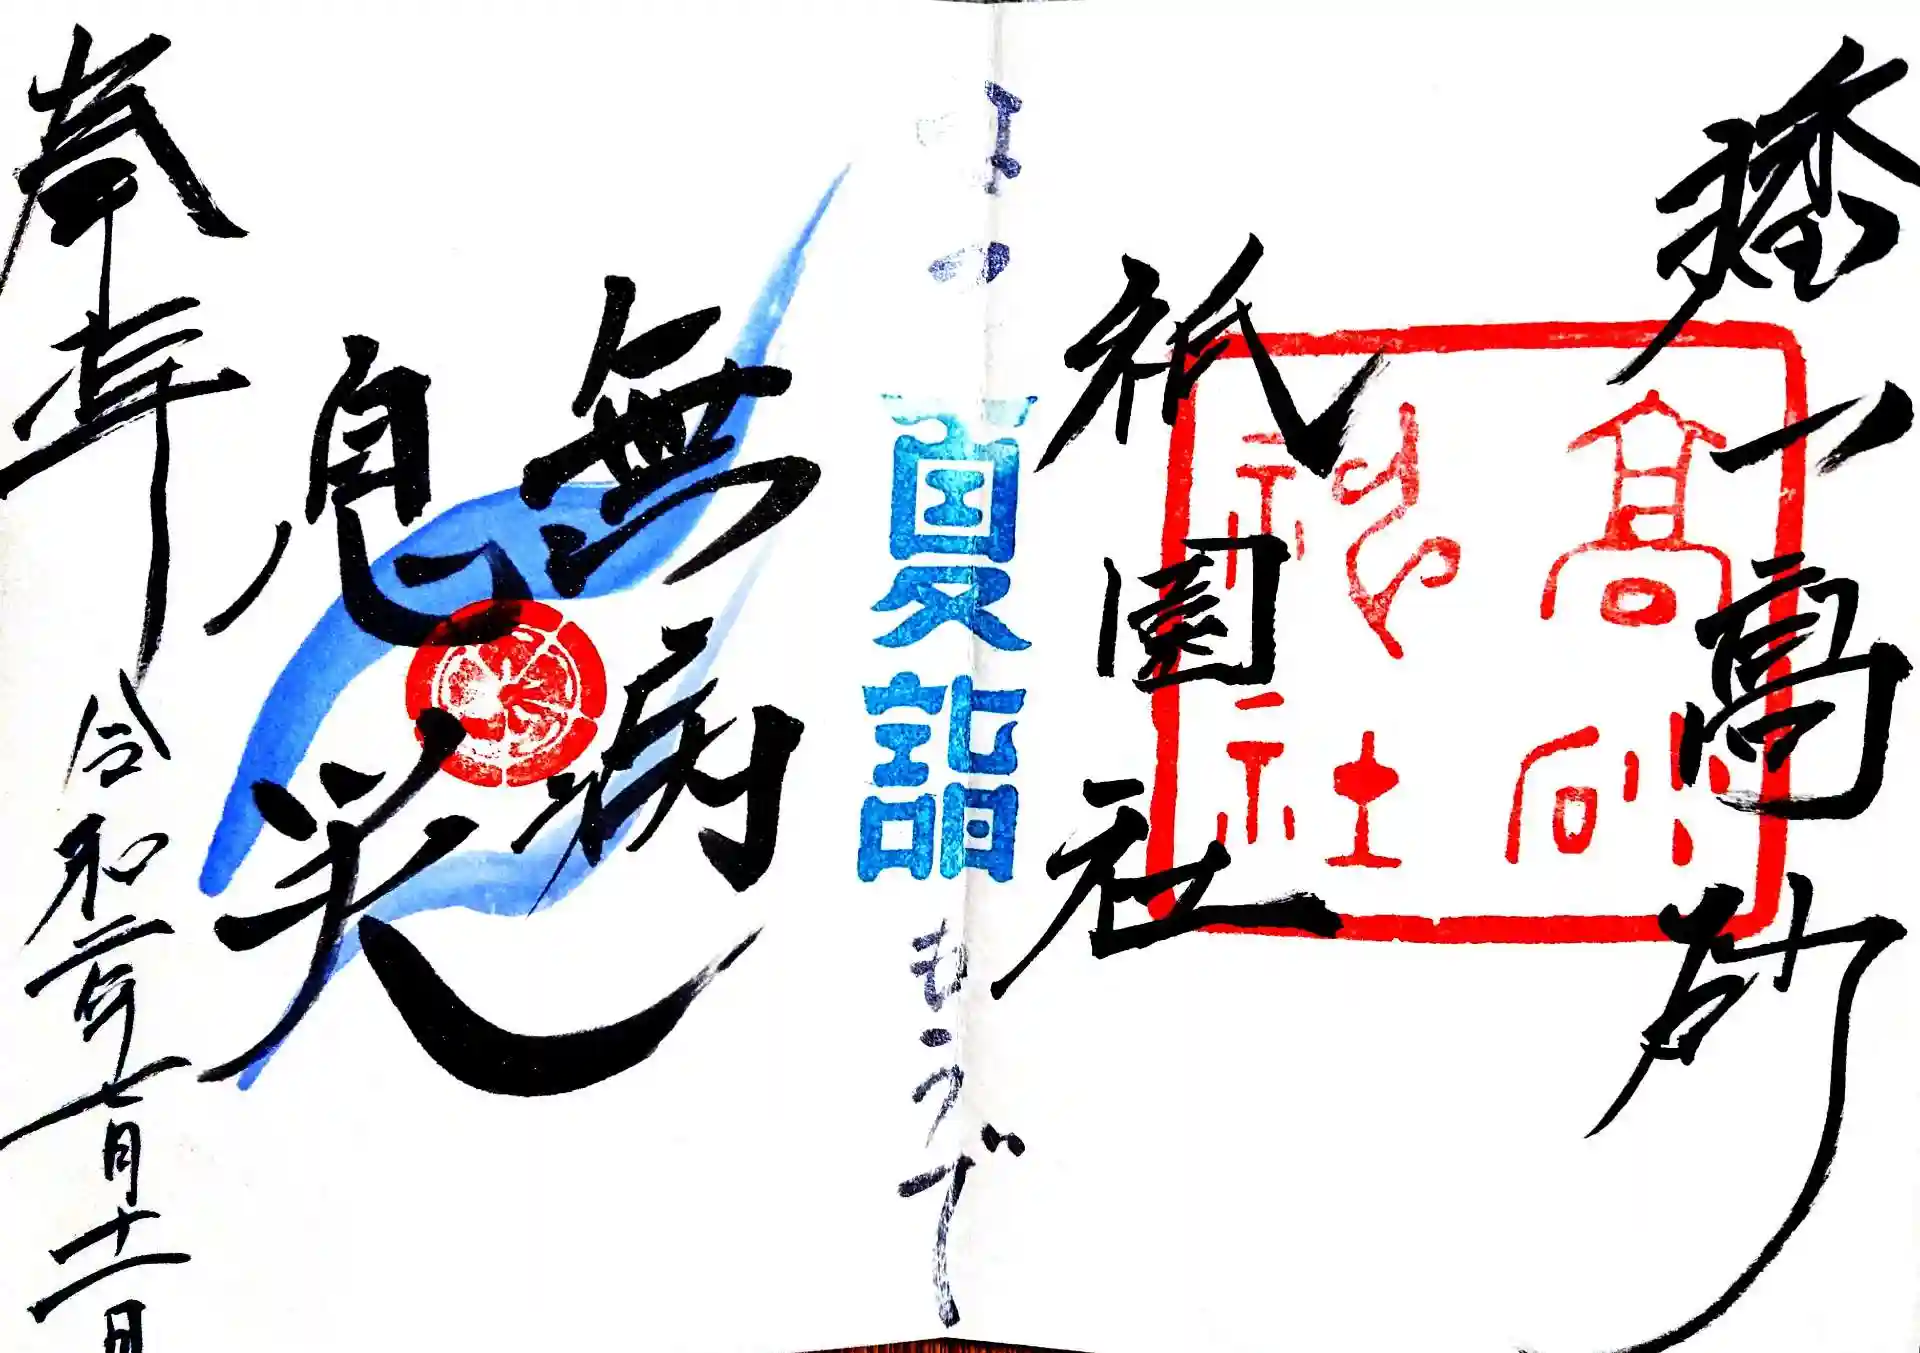 播 高砂
祇園社
高砂
神社
なつ
夏詣
もうで
無病
息災
奉拝
令和二年七月十二日